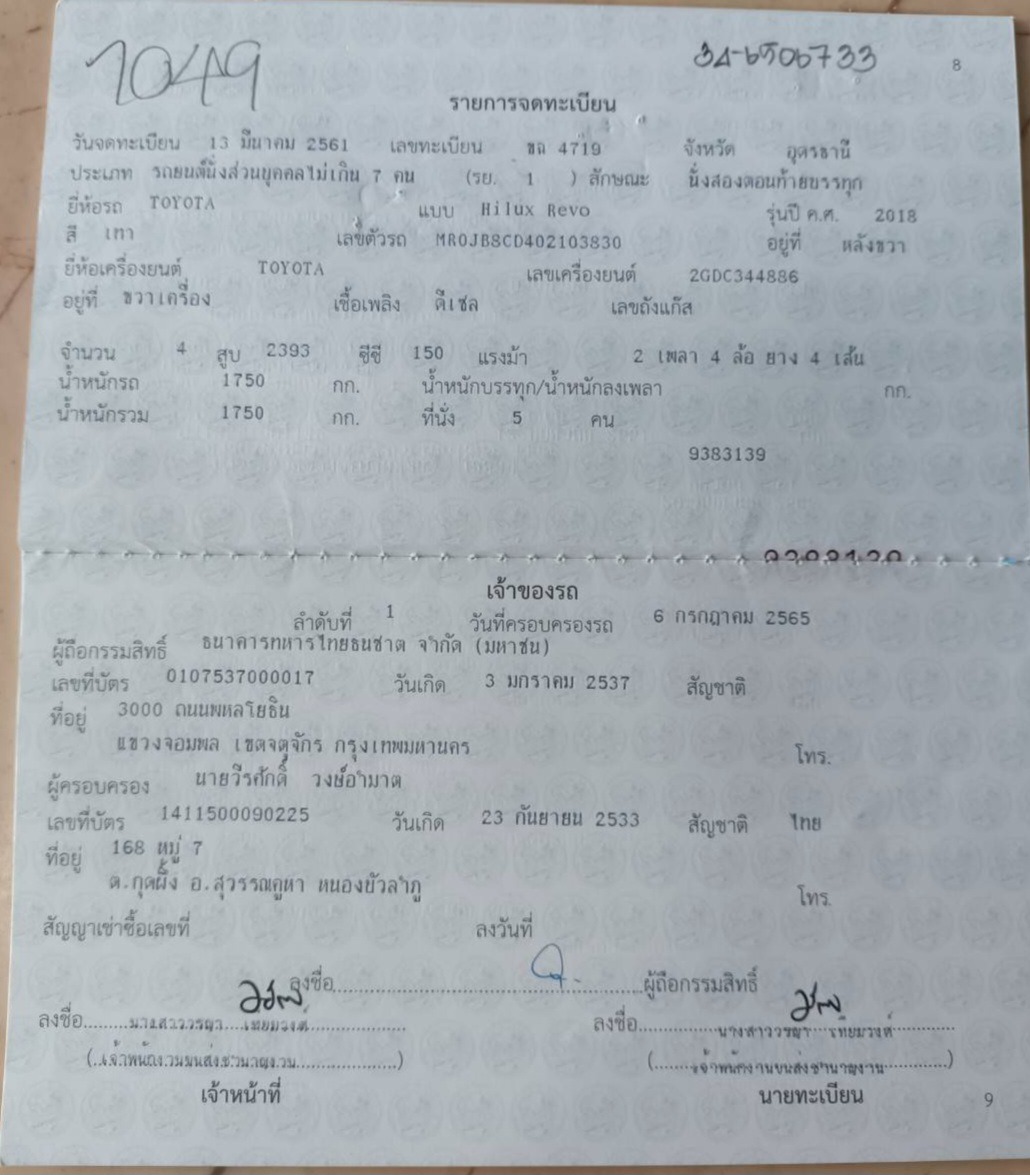 1049
34-6506733
8
รายการจดทะเบียน
วันจดทะเบียน 13 มีนาคม 2561 เลขทะเบียน ขฉ 4719 จังหวัด อุดรธานี
ประเภท รถยนต์นั่งส่วนบุคคลไม่เกิน 7 คน (รย. 1 ) ลักษณะ นั่งสองตอนท้ายบรรทุก
ยี่ห้อรถ TOYOTA แบบ Hilux Revo รุ่นปี ค.ศ. 2018
สี เทา เลขตัวรถ MR0JB8CD402103830 อยู่ที่ หลังขวา
ยี่ห้อเครื่องยนต์ TOYOTA เลขเครื่องยนต์ 2GDC344886
อยู่ที่ ขวาเครื่อง เชื้อเพลิง ดีเซล เลขถังแก๊ส
จำนวน 4 สูบ 2393 ซีซี 150 แรงม้า 2 เพลา 4 ล้อ ยาง 4 เส้น
น้ำหนักรถ 1750 กก. น้ำหนักบรรทุก/น้ำหนักลงเพลา กก.
น้ำหนักรวม 1750 กก. ที่นั่ง 5 คน
9383139
เจ้าของรถ
ลำดับที่ 1 วันที่ครอบครองรถ 6 กรกฎาคม 2565
ผู้ถือกรรมสิทธิ์ ธนาคารทหารไทยธนชาต จำกัด (มหาชน)
เลขที่บัตร 0107537000017 วันเกิด 3 มกราคม 2537 สัญชาติ
ที่อยู่ 3000 ถนนพหลโยธิน
แขวงจอมพล เขตจตุจักร กรุงเทพมหานคร โทร.
ผู้ครอบครอง นายวีรศักดิ์ วงษ์อำมาต
เลขที่บัตร 1411500090225 วันเกิด 23 กันยายน 2533 สัญชาติ ไทย
ที่อยู่ 168 หมู่ 7
ต.กุดผึ้ง อ.สุวรรณคูหา หนองบัวลำภู โทร.
สัญญาเช่าซื้อเลขที่ ลงวันที่
ลงชื่อ ผู้ถือกรรมสิทธิ์
ลงชื่อ นางสาววรญา เทียมวงศ์ ลงชื่อ นางสาววรญา เทียมวงศ์
(เจ้าพนักงานขนส่งชำนาญงาน) (เจ้าพนักงานขนส่งชำนาญงาน)
เจ้าหน้าที่ นายทะเบียน
9